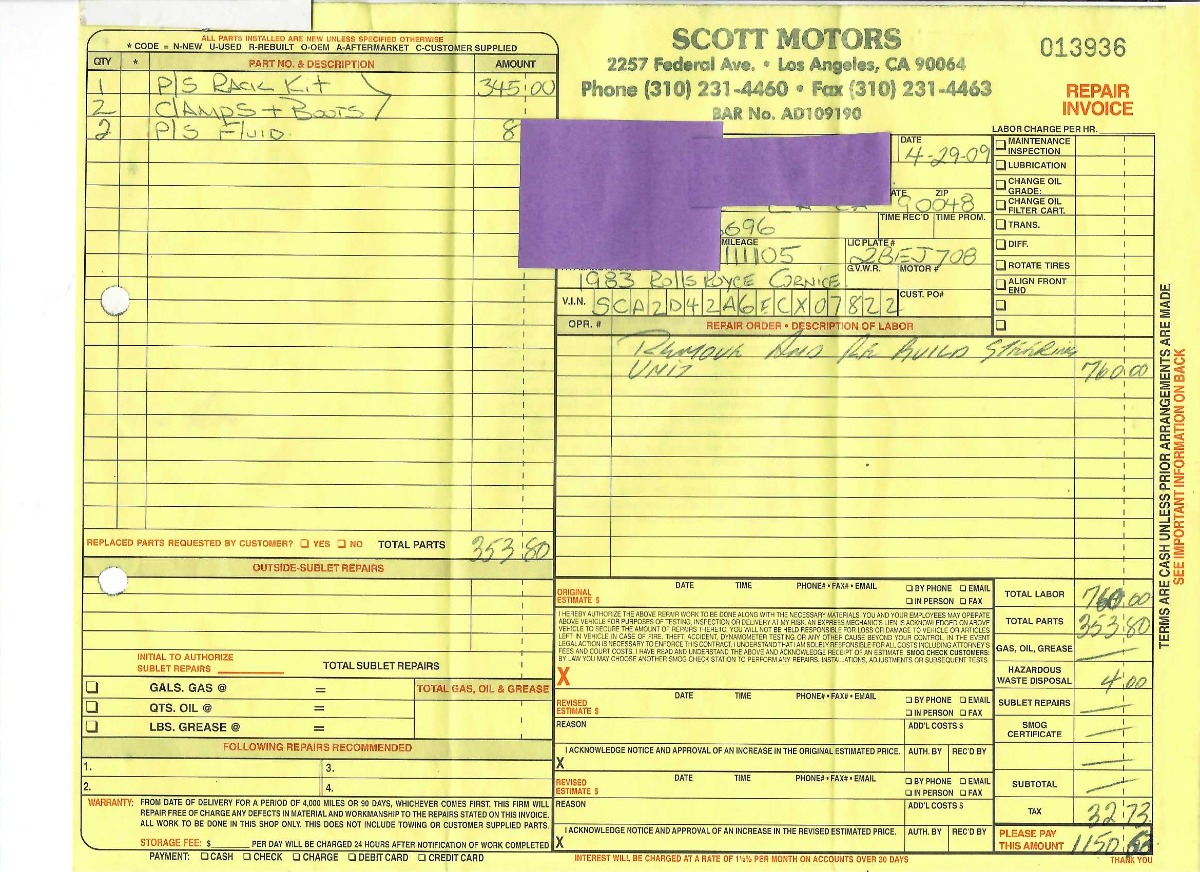 ALL PARTS INSTALLED ARE NEW UNLESS SPECIFIED OTHERWISE
* CODE = N-NEW U-USED R-REBUILT O-OEM A-AFTERMARKET C-CUSTOMER SUPPLIED
QTY * PART NO. & DESCRIPTION AMOUNT
1 P/S RACK KIT 345.00
2 CLAMPS + BOOTS
2 P/S FLUID 8
REPLACED PARTS REQUESTED BY CUSTOMER? ☐ YES ☐ NO TOTAL PARTS 353.80
OUTSIDE-SUBLET REPAIRS
INITIAL TO AUTHORIZE
SUBLET REPAIRS
TOTAL SUBLET REPAIRS
☐ GALS. GAS @ = TOTAL GAS, OIL & GREASE
☐ QTS. OIL @ =
☐ LBS. GREASE @ =
FOLLOWING REPAIRS RECOMMENDED
1. 3.
2. 4.
WARRANTY: FROM DATE OF DELIVERY FOR A PERIOD OF 4,000 MILES OR 90 DAYS, WHICHEVER COMES FIRST, THIS FIRM WILL
REPAIR FREE OF CHARGE ANY DEFECTS IN MATERIAL AND WORKMANSHIP TO THE REPAIRS STATED ON THIS INVOICE.
ALL WORK TO BE DONE IN THIS SHOP ONLY. THIS DOES NOT INCLUDE TOWING OR CUSTOMER SUPPLIED PARTS.
STORAGE FEE: $ PER DAY WILL BE CHARGED 24 HOURS AFTER NOTIFICATION OF WORK COMPLETED
PAYMENT: ☐ CASH ☐ CHECK ☐ CHARGE ☐ DEBIT CARD ☐ CREDIT CARD
SCOTT MOTORS
2257 Federal Ave. • Los Angeles, CA 90064
Phone (310) 231-4460 • Fax (310) 231-4463
BAR No. AD109190
013936
REPAIR
INVOICE
DATE
4-29-09
ZIP
90048
TIME REC'D TIME PROM.
696
MILEAGE LIC PLATE #
111105 2BEJ708
G.V.W.R. MOTOR #
1983 Rolls Royce Cornice
V.I.N. SCA2D42A6ECX07822 CUST. PO#
LABOR CHARGE PER HR.
☐ MAINTENANCE INSPECTION
☐ LUBRICATION
☐ CHANGE OIL GRADE:
☐ CHANGE OIL FILTER CART.
☐ TRANS.
☐ DIFF.
☐ ROTATE TIRES
☐ ALIGN FRONT END
OPR. # REPAIR ORDER • DESCRIPTION OF LABOR
REMOVE AND RE BUILD STEERING
UNIT 760.00
ORIGINAL ESTIMATE $ DATE TIME PHONE# • FAX# • EMAIL ☐ BY PHONE ☐ EMAIL
☐ IN PERSON ☐ FAX
I HEREBY AUTHORIZE THE ABOVE REPAIR WORK TO BE DONE ALONG WITH THE NECESSARY MATERIALS. YOU AND YOUR EMPLOYEES MAY OPERATE
ABOVE VEHICLE FOR PURPOSES OF TESTING, INSPECTION OR DELIVERY AT MY RISK. AN EXPRESS MECHANIC'S LIEN IS ACKNOWLEDGED ON ABOVE
VEHICLE TO SECURE THE AMOUNT OF REPAIRS THERETO. YOU WILL NOT BE HELD RESPONSIBLE FOR LOSS OR DAMAGE TO VEHICLE OR ARTICLES
LEFT IN VEHICLE IN CASE OF FIRE, THEFT, ACCIDENT, DYNAMOMETER TESTING OR ANY OTHER CAUSE BEYOND YOUR CONTROL. IN THE EVENT
LEGAL ACTION IS NECESSARY TO ENFORCE THIS CONTRACT, I UNDERSTAND THAT I AM SOLELY RESPONSIBLE FOR ALL COSTS INCLUDING ATTORNEY'S
FEES AND COURT COSTS. I HAVE READ AND UNDERSTAND THE ABOVE AND ACKNOWLEDGE RECEIPT OF AN ESTIMATE. SMOG CHECK CUSTOMERS:
BY LAW YOU MAY CHOOSE ANOTHER SMOG CHECK STATION TO PERFORM ANY REPAIRS, INSTALLATIONS, ADJUSTMENTS OR SUBSEQUENT TESTS.
X
REVISED ESTIMATE $ DATE TIME PHONE# • FAX# • EMAIL ☐ BY PHONE ☐ EMAIL
☐ IN PERSON ☐ FAX
REASON ADD'L COSTS $
I ACKNOWLEDGE NOTICE AND APPROVAL OF AN INCREASE IN THE ORIGINAL ESTIMATED PRICE. AUTH. BY REC'D BY
X
REVISED ESTIMATE $ DATE TIME PHONE# • FAX# • EMAIL ☐ BY PHONE ☐ EMAIL
☐ IN PERSON ☐ FAX
REASON ADD'L COSTS $
I ACKNOWLEDGE NOTICE AND APPROVAL OF AN INCREASE IN THE REVISED ESTIMATED PRICE. AUTH. BY REC'D BY
X
INTEREST WILL BE CHARGED AT A RATE OF 1½% PER MONTH ON ACCOUNTS OVER 30 DAYS
TOTAL LABOR 760.00
TOTAL PARTS 353.80
GAS, OIL, GREASE —
HAZARDOUS WASTE DISPOSAL 4.00
SUBLET REPAIRS —
SMOG CERTIFICATE —
SUBTOTAL —
TAX 32.73
PLEASE PAY THIS AMOUNT 1150
THANK YOU
TERMS ARE CASH UNLESS PRIOR ARRANGEMENTS ARE MADE
SEE IMPORTANT INFORMATION ON BACK